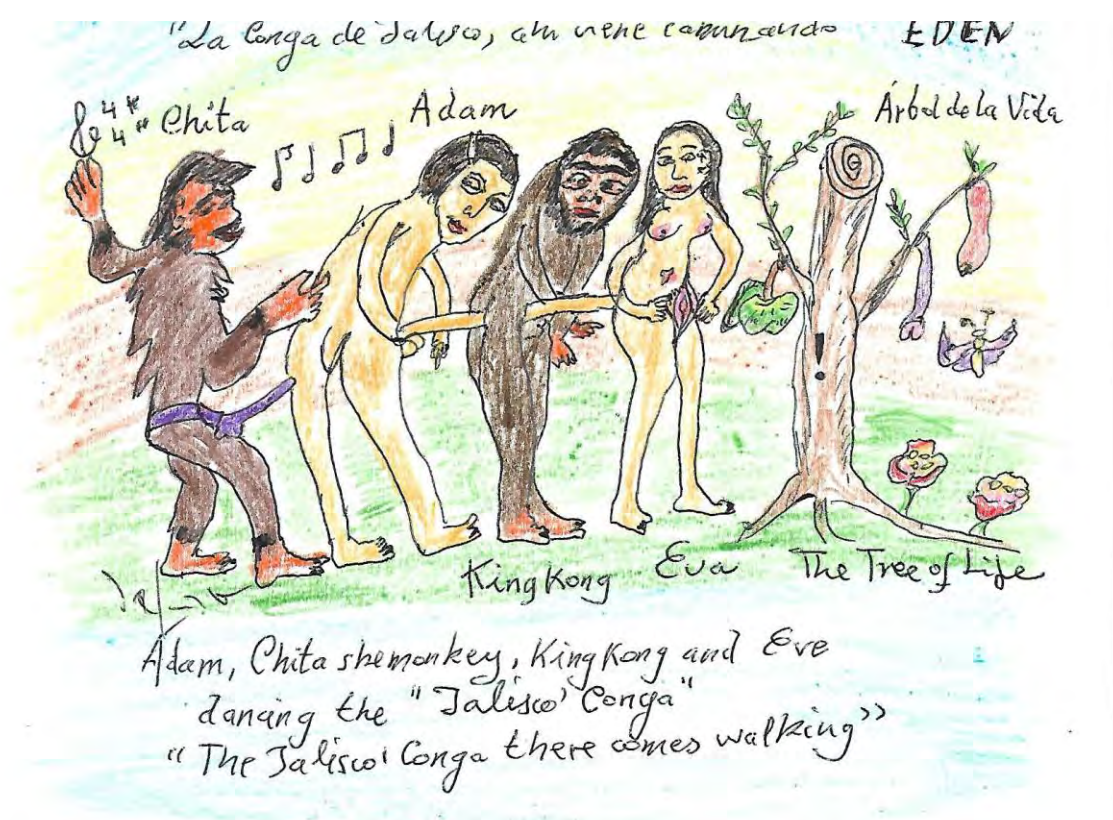 "La Conga de Jalisco, ahí viene caminando EDEN
4" 4" Chita
Adam
Árbol de la Vida
King Kong
Eva
The Tree of Life
Adam, Chita shemonkey, King Kong and Eve
dancing the "Jalisco' Conga"
"The Jalisco' Conga there comes walking"